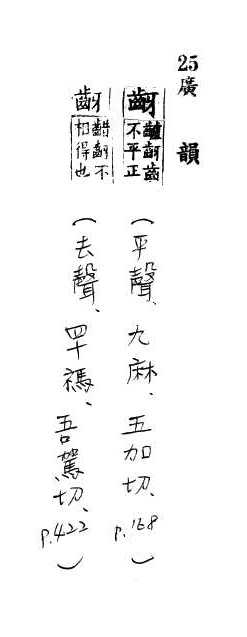 25廣韻
齖 齇齖齒不平正 (平聲、九麻、五加切、p.168)
齖 齰齖不相得也 (去聲、四十禡、吾駕切、p.422)